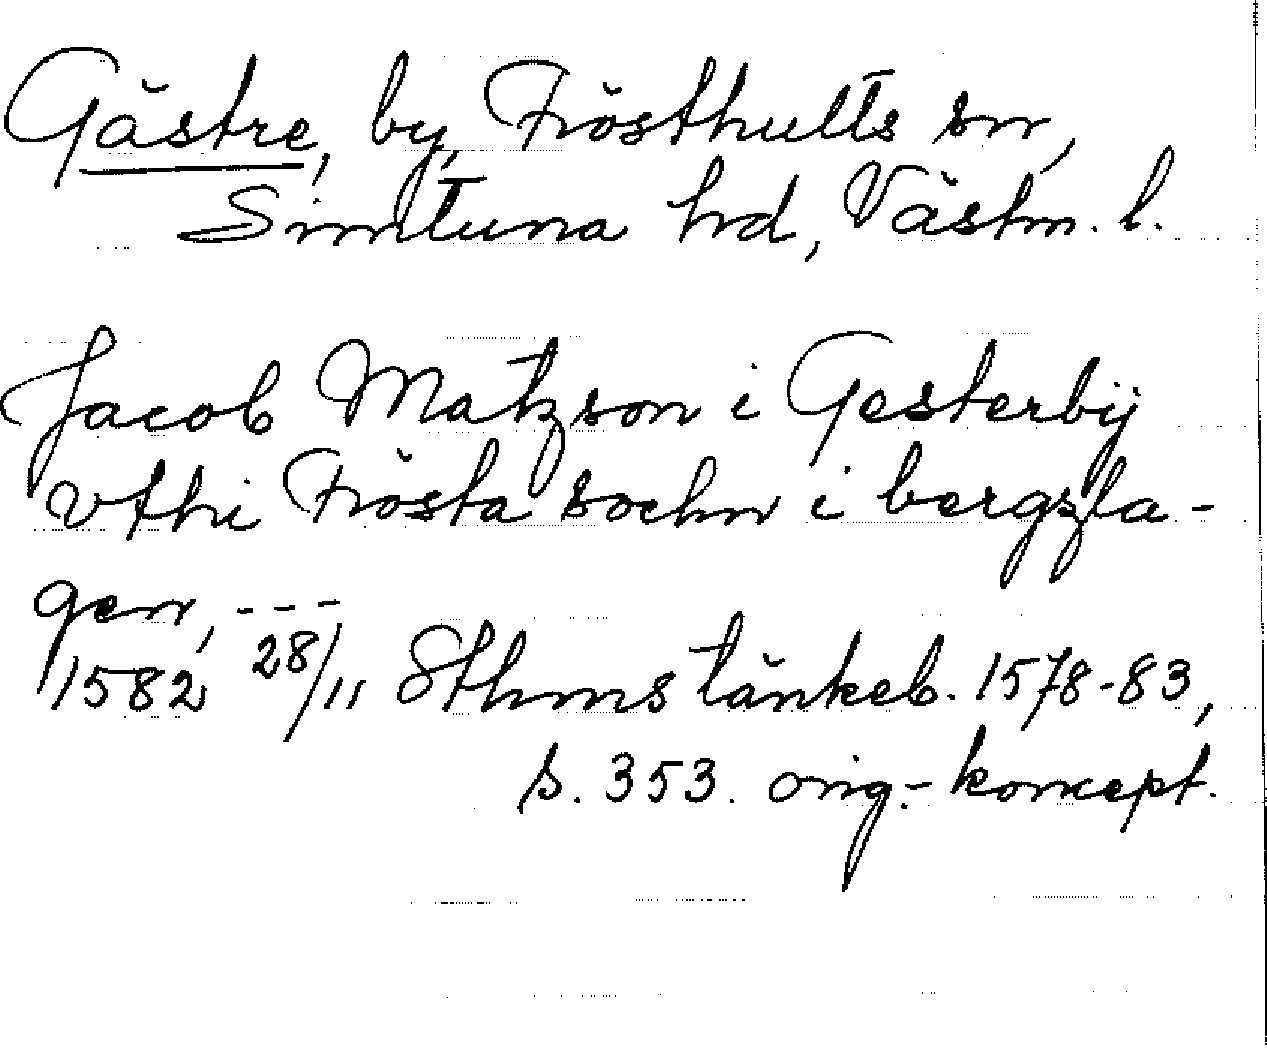 Gästre, by, Frösthults sn,
Simtuna hd, Västm. l.
Jacob Matzson i Gesterbÿ
vthi Frösta sochn i bergzla-
gen, ---
1582 28/11 Sthms tänkeb. 1578-83,
s. 353. orig.-koncept.